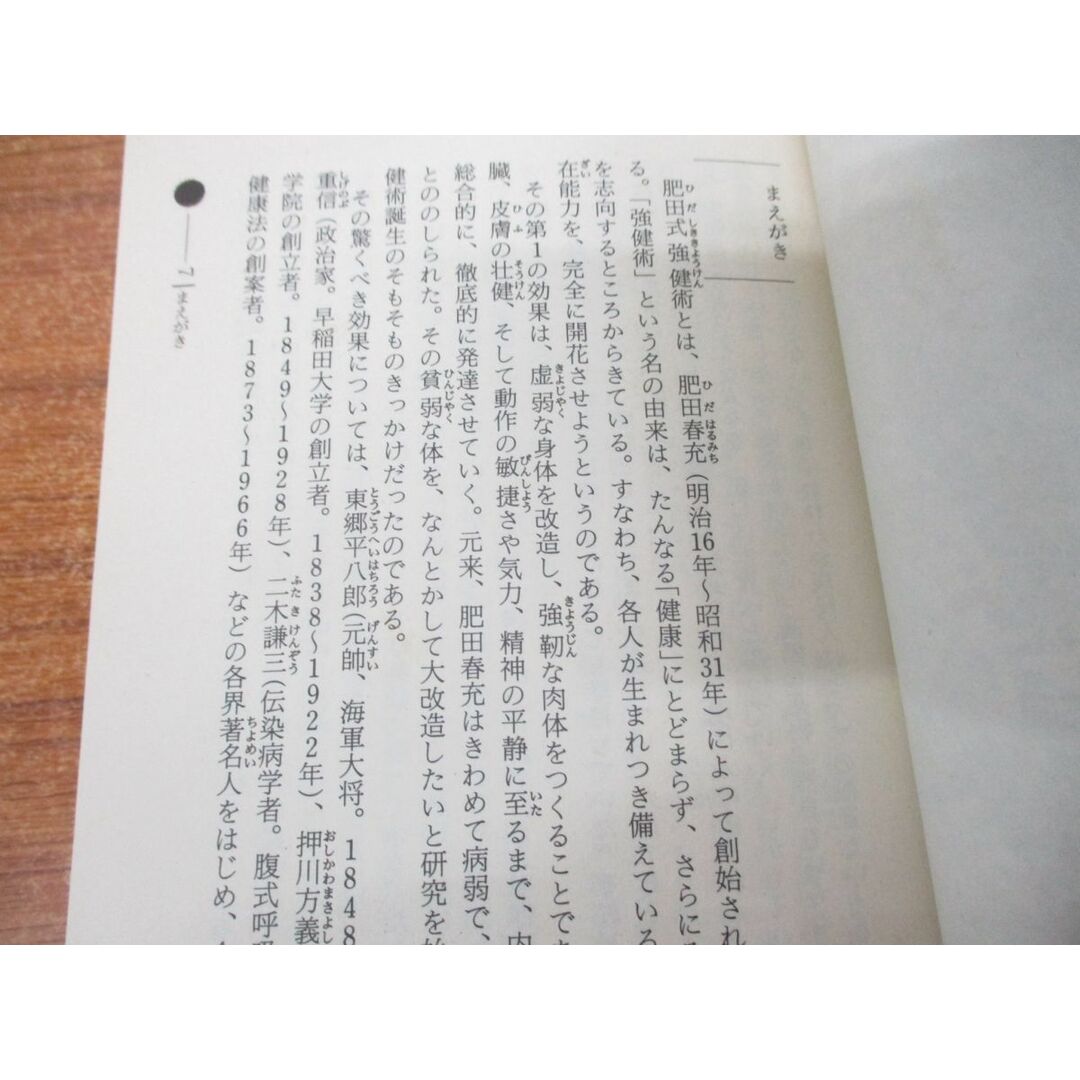 まえがき
肥田式強健術とは、肥田春充(明治16年〜昭和31年)によって創始され
る。「強健術」という名の由来は、たんなる「健康」にとどまらず、さらに
を志向するところからきている。すなわち、各人が生まれつき備えている
在能力を、完全に開花させようというのである。
その第1の効果は、虚弱な身体を改造し、強靭な肉体をつくることで
臓、皮膚の壮健、そして動作の敏捷さや気力、精神の平静に至るまで、内
総合的に、徹底的に発達させていく。元来、肥田春充はきわめて病弱で、
とののしられた。その貧弱な体を、なんとかして大改造したいと研究を
健術誕生のそもそものきっかけだったのである。
その驚くべき効果については、東郷平八郎(元帥、海軍大将。1848
重信(政治家。早稲田大学の創立者。1838〜1922年)、押川方義
学院の創立者。1849〜1928年)、二木謙三(伝染病学者。腹式呼
健康法の創案者。1873〜1966年)などの各界著名人をはじめ、
7 まえがき